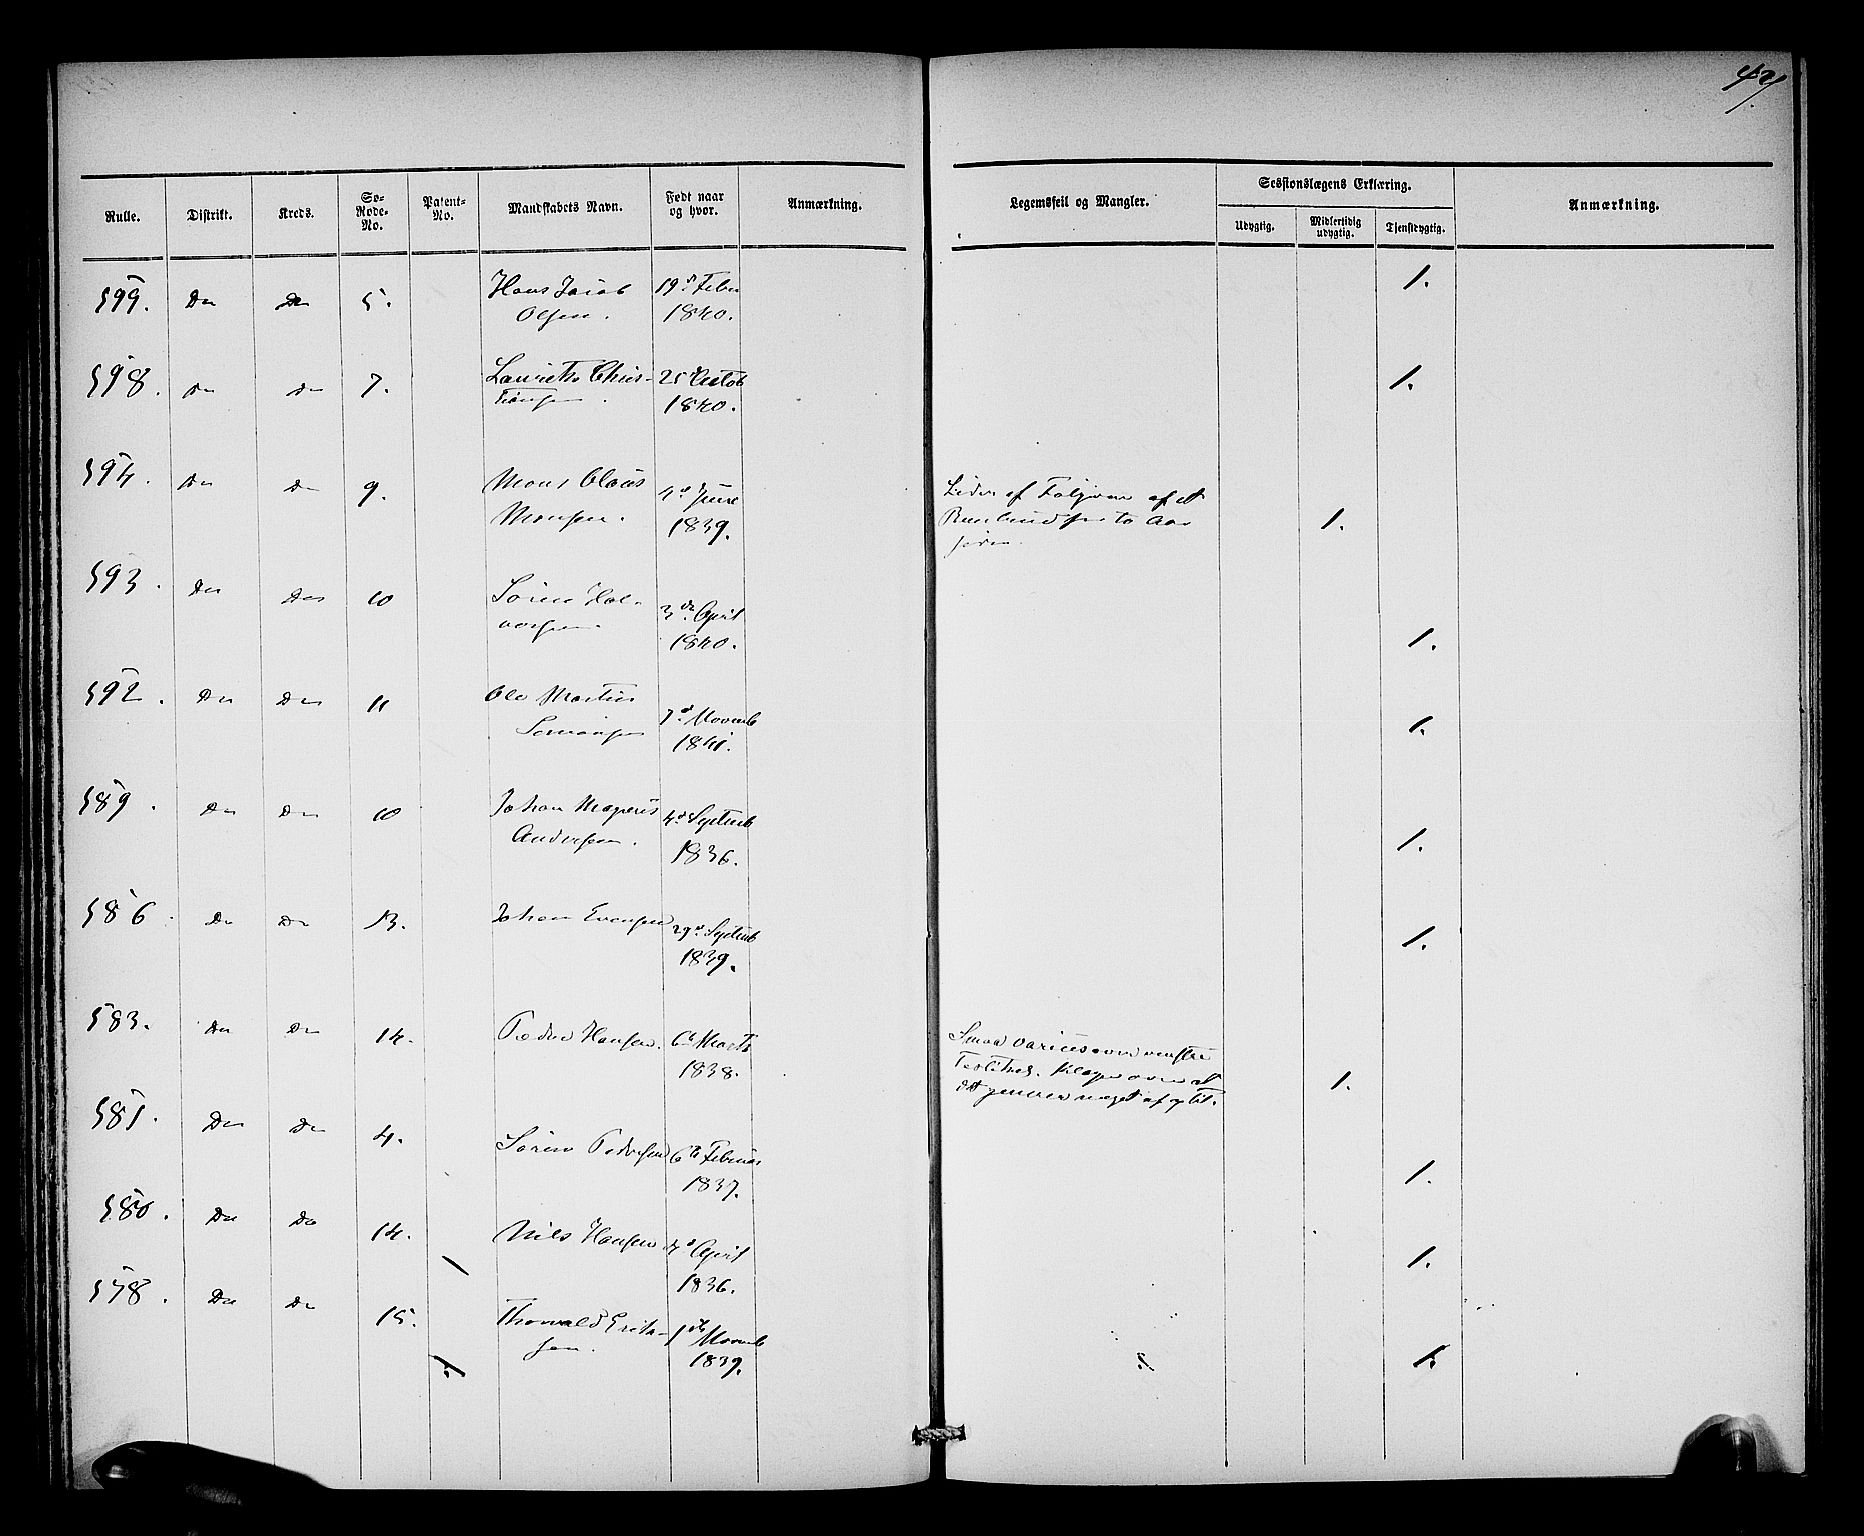 Rulle. Distrikt. Kreds. Sø-Rode-No. Patent-No. Mandskabets Navn. Født naar og hvor. Anmærkning. Legemsfeil og Mangler. Sessionslægens Erklæring. Udygtig. Midlertidig udygtig. Tjenstdygtig. Anmærkning.
599. Do Do 5. Hans Jacob 19de Febr 1.
Olsen. 1840.
598. Do Do 7. Laurits Chris- 25 Octob 1.
tiansen. 1840.
594. Do Do 9. Mons Claus 4de Juni Lider af Følgerne af et
Monsen. 1839. Beenbrud for to Aar 1.
siden.
593. Do Do 10 Søren Hal- 3de April
vorsen. 1840. 1.
592. Do Do 11 Ole Martin 7de Novemb 1.
1841.
589. Do Do 10 Johan Magnus 4de Septemb
Andersen. 1836. 1.
586. Do Do 13. Johan Evensen 29de Septemb 1.
1839.
583. Do Do 14. Peder Hansen. 6te Marts Smaa varicer over venstre
1838. Testikel. Klager over at 1.
det generer meget af og til.
581. Do Do 4. Søren Pedersen 6te Februar 1.
1837.
580. Do Do 14. Nils Hansen April 1.
1836.
578. Do Do 15. Thorvald Erik- 1ste Novemb
sen. 1839. 1.